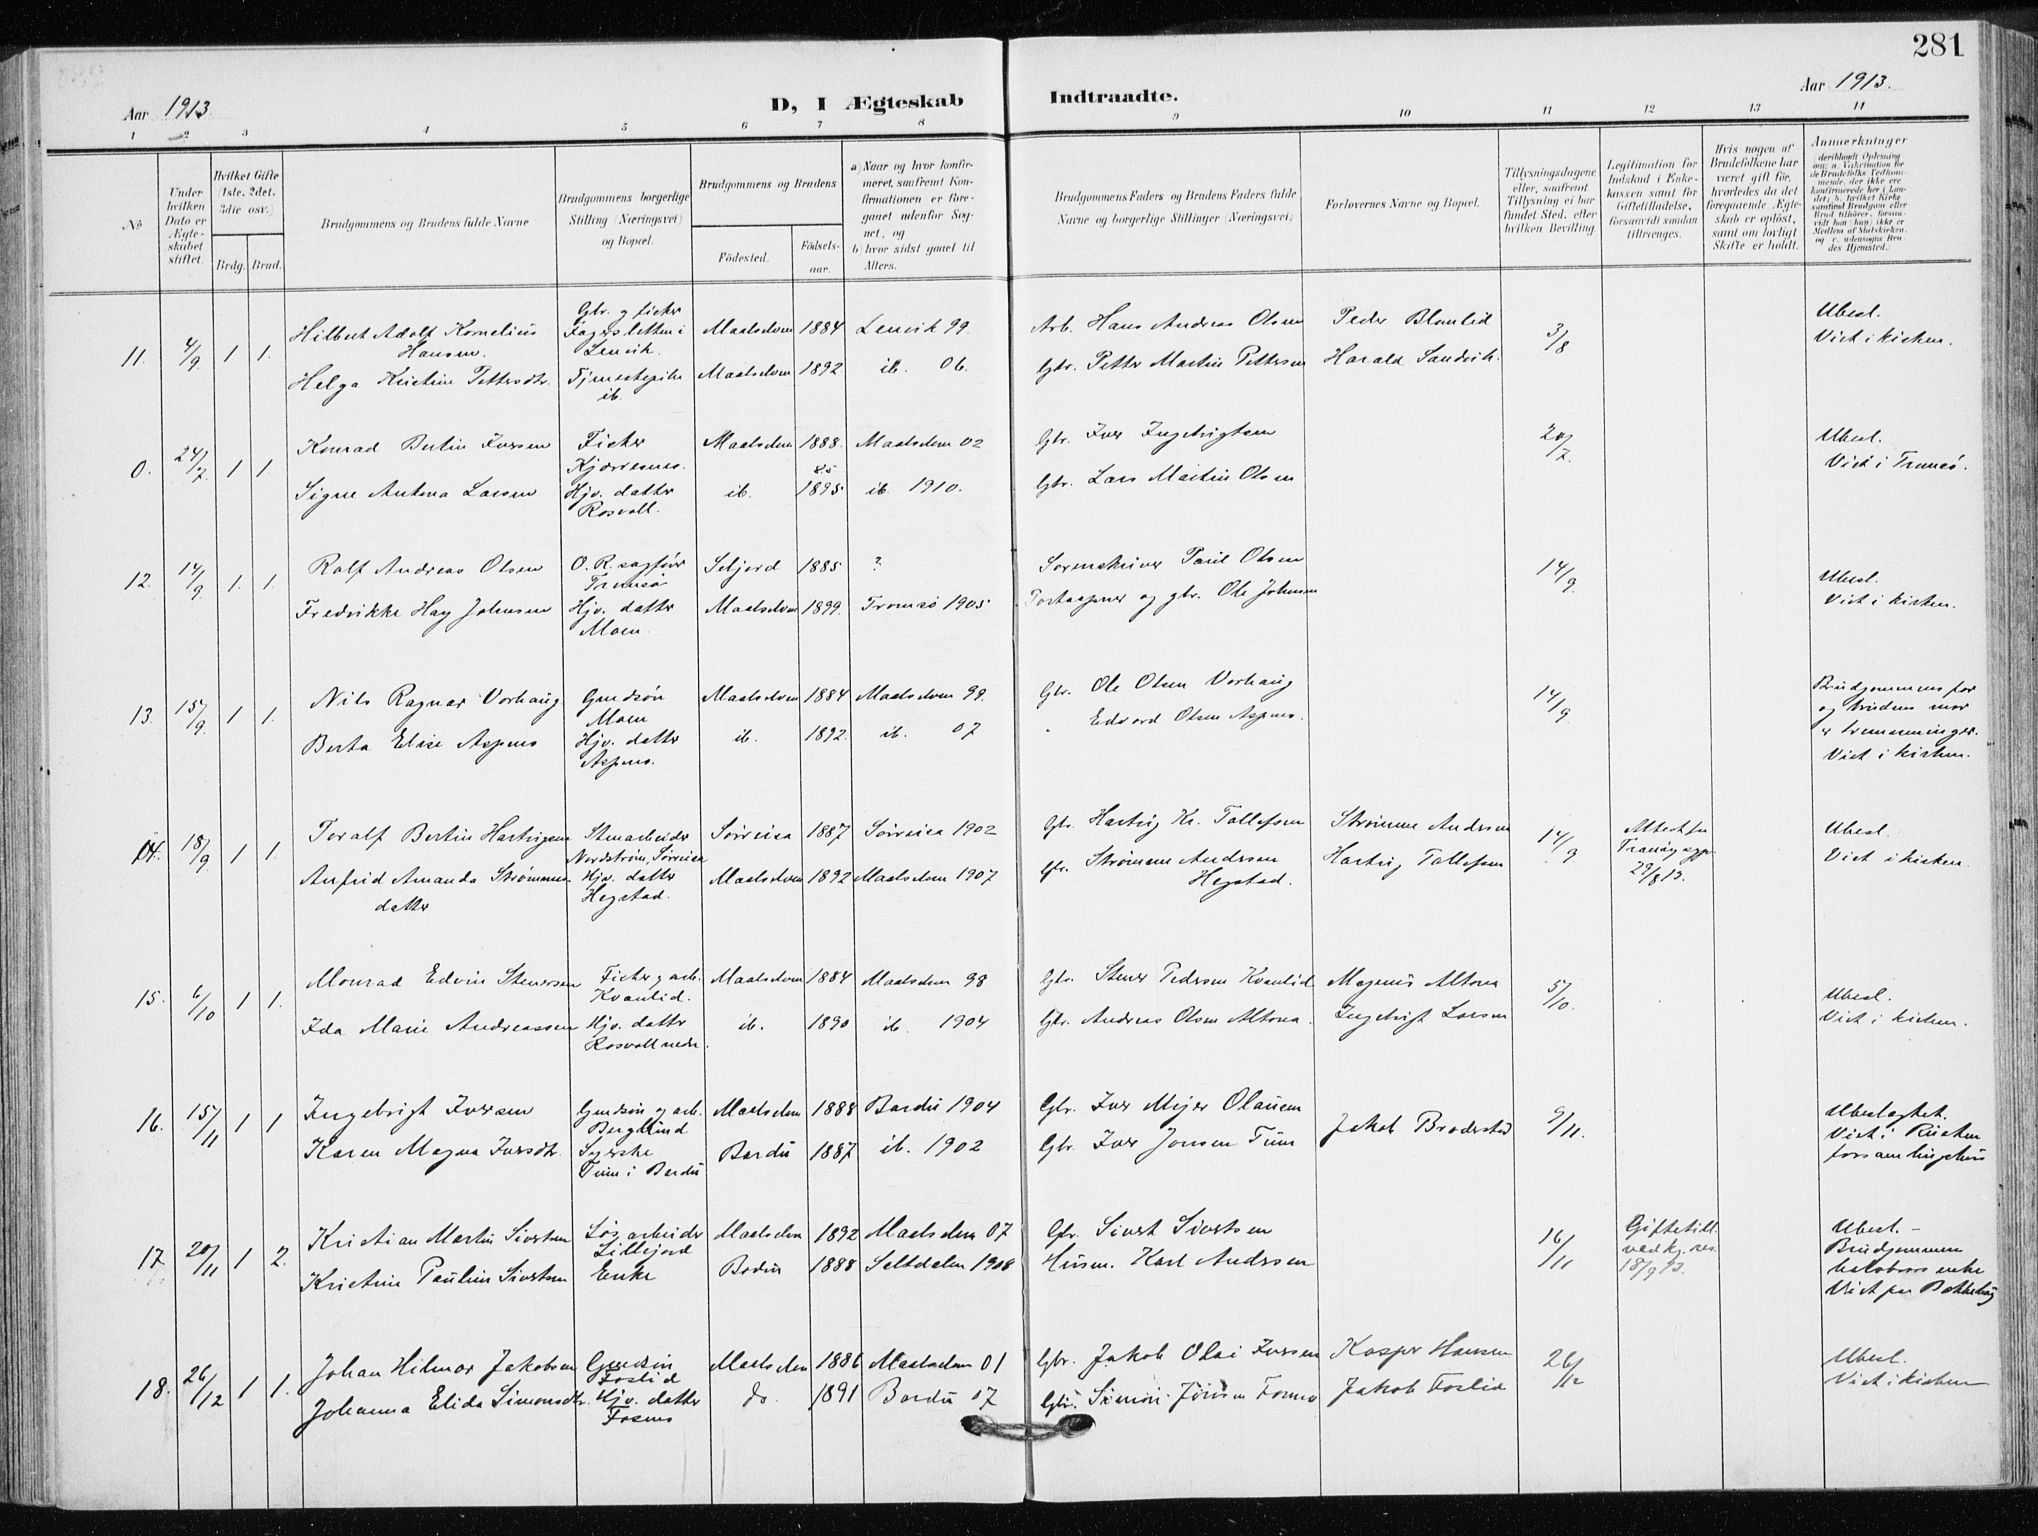 281
Aar 1913.
D, I Ægteskab Indtraadte.
Aar 1913.
1 2 3 4 5 6 7 8 9 10 11 12 13 14
No
Under hvilken Dato er Ægteskabet stiftet.
Hvilket Gifte (1ste, 2det, 3die osv.)
Brdg. Brud.
Brudgommens og Brudens fulde Navne
Brudgommens borgerlige Stilling (Næringsvei) og Bopæl.
Brudgommens og Brudens
Födested.
Födselsaar.
a) Naar og hvor konfirmeret, saafremt Konfirmationen er foregaaet udenfor Sognet, og
b) hvor sidst gaaet til Alters.
Brudgommens Faders og Brudens Faders fulde Navne og borgerlige Stillinger (Næringsvei)
Forlovernes Navne og Bopæl.
Tillysningsdagene eller, saafremt Tillysning ei har fundet Sted, efter hvilken Bevilling.
Legitimation for Indskud i Enkekassen samt for Giftetilladelse, forsaavidt saadan tiltrænges.
Hvis nogen af Brudefolkene har været gift før, hvordedes da det foregaaende Ægteskab er oplöst, samt om lovligt Skifte er holdt.
Anmerkninger
11. 4/9 1 1. Hilbert Adolf Kornelius Hansen. Gbr. og fisker Fagersletten i Lenvik. Maalselven 1884 Lenvik 99. Arb. Hans Andreas Olsen Peder Blomlid 3/8 Ubesl. Viet i kirken.
Helga Kristine Pettersdtr. Tjenestepike ib. Maalselven 1892 ib. 06. Gbr. Petter Martin Pettersen Harald Sandvik.
0. 24/7 1 1. Konrad Bertin Iversen Fisker Kjærvesnes. Maalselven 1888. Maalselven 02 Gbr. Iver Ingebrigtsen 20/7. Ubesl. Viet i Tromsö.
Signe Antona Larsen Hjv. datter Rosvoll. ib. 95 1895 ib. 1910. Gbr. Lars Martin Olsen
12. 14/9. 1. 1. Rolf Andreas Olsen O. R. sagfører Tromsö Seljord 1885 ? Sorenskriver Paul Olsen 14/9. Ubesl. Viet i kirken.
Fredrikke Hay Johnsen Hjv. datter Moen. Maalselven 1899. Tromsö 1905. Postaapner og gbr. Ole Johnsen
13. 15/9. 1 1. Nils Ragnar Vorhaug Gaardsøn Moen Maalselven 1884 Maalselven 99. Gbr. Ole Olsen Vorhaug 14/9. Brudgommens far og brudens mor er tremenninger. Viet i kirken.
Berta Elise Aspenes Hjv. datter Aspenes. ib. 1892. ib. 07 Edvard Olsen Aspenes.
14. 18/9 1 1. Toralf Bertin Hartvigsen Stenarbeider Nordstrøm, Sørreisa Sörreisa 1887 Sörreisa 1902 Gbr. Hartvig Kr. Tollefsen Strømme Andersen 14/9 Attest fra Tranöy sgpr. 29/8 13. Ubesl. Viet i kirken.
Anfrid Amanda Strømmesdatter Hjv. datter Hegstad. Maalselven 1892 Maalselven 1907 Gbr. Strømme Andersen Hegstad. Hartvig Tollefsen
15. 6/10 1 1. Monrad Edvin Stenersen Fisker og arb. Kvanlid. Maalselven 1884 Maalselven 98 Gbr. Stener Pedersen Kvanlid Magnus Altona 5/10. Ubesl. Viet i kirken.
Ida Marie Andreassen Hjv. datter Rosvoll nedre. ib. 1890 ib. 1904 Gbr. Andreas Olsen Altona. Ingebrigt Larsen
16. 15/11 1 1 Ingebrigt Iversen Gaardsøn og arb. Berglund Maalselven 1888 Bardu 1904 Gbr. Iver Mejer Olausen Jakob Brodersted 9/11. Ubeslægtet. Viet i Rusten forsamlingshus
Karen Magna Iversdtr. Syerske Tun i Bardu Bardu 1887 ib. 1902 Gbr. Iver Jonsen Tun
17. 20/11 1 2. Kristian Martin Sivertsen Løsarbeider Lillejord Maalselven 1892 Maalselven 07 Gbr. Sivert Sivertsen 16/11 Giftetill. ved kg. res. 18/9 13. Ubesl. - Brudgommens halvbrors enke Viet paa Bakkehaug
Kristine Pauline Sivertsen Enke Bodin 1888 Saltdalen 1908 Husm. Karl Andersen
18. 26/12 1 1. Johan Hilmar Jakobsen Gaardsøn Foslid Maalselven 1886 Maalselven 01 Gbr. Jakob Olai Iversen Kasper Hansen 26/12 Ubesl. Viet i kirken
Johanna Elida Simonsdtr. Hjv. datter Fosnes do. 1891 Bardu 07 Gbr. Simon Jönsen Fosmo Jakob Foslid